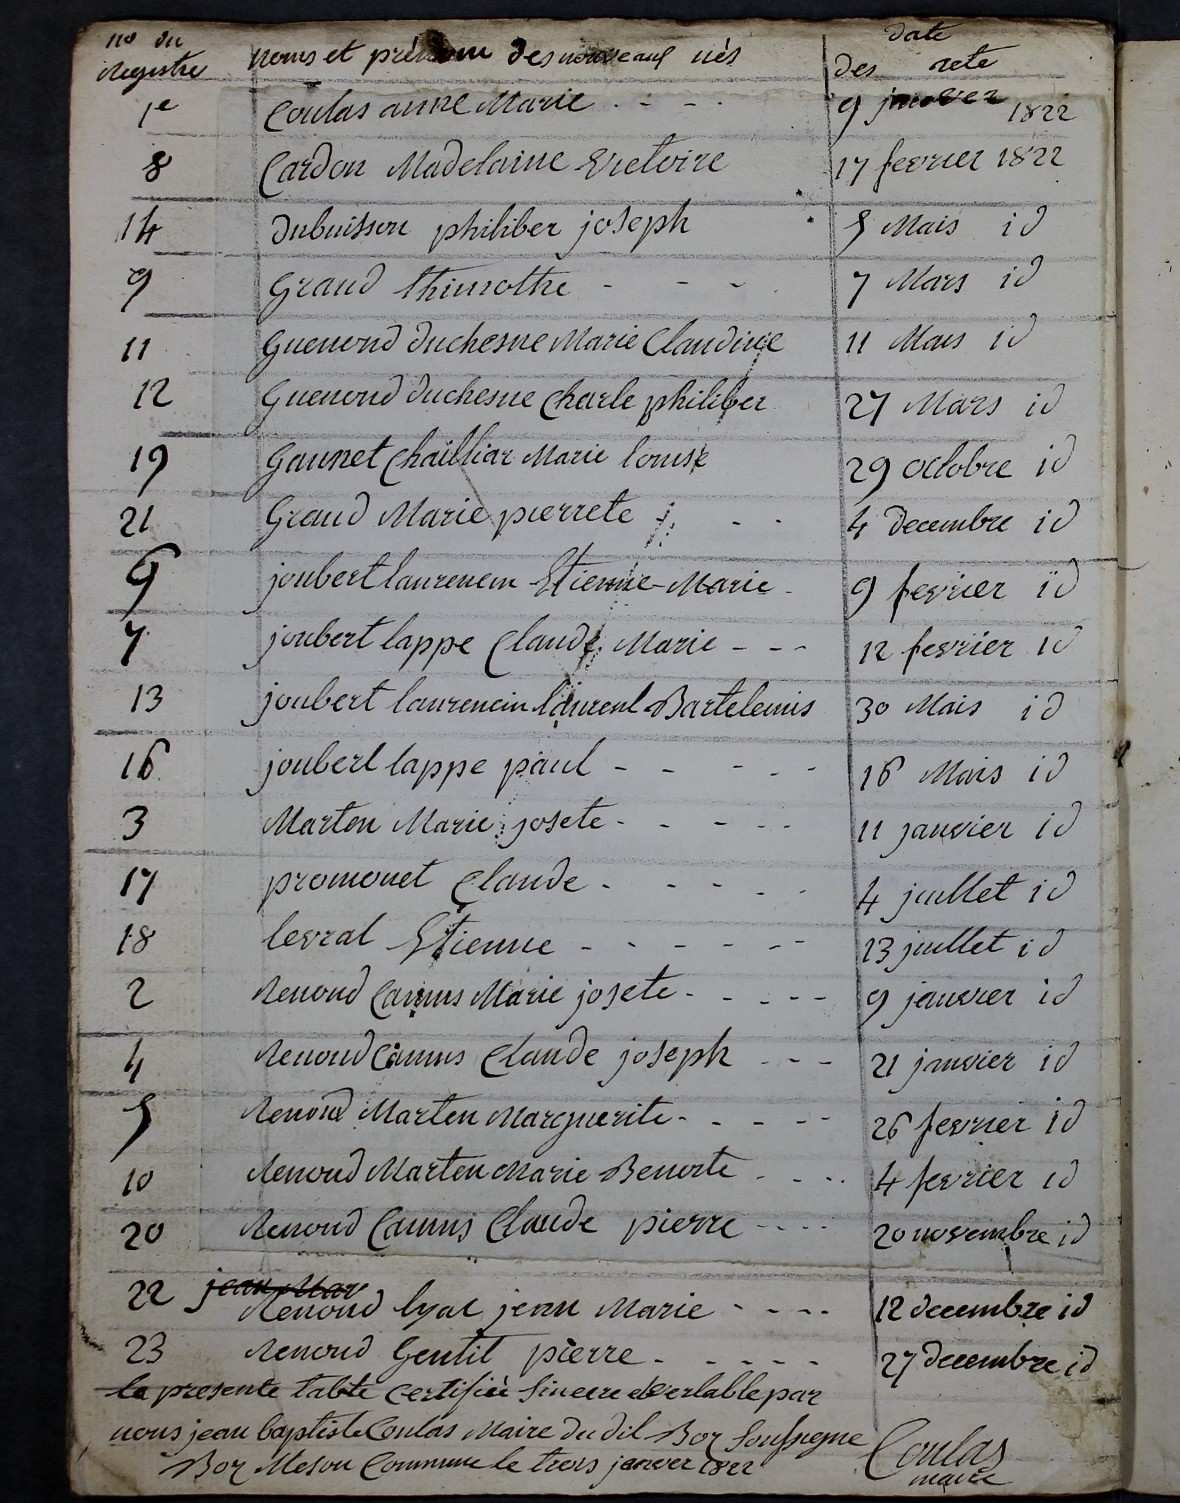 no du Registre noms et prénom des nouveaux nés date des acte
1e Coulas anne Marie 9 janvier 1822
8 Cardon Madelaine Victoire 17 fevrier 1822
14 dubuisson philiber joseph 5 Mais id
9 Grand thimothe 7 Mars id
11 Guenond duchesne Marie Claudine 11 Mars id
12 Guenond duchesne Charle philiber 27 Mars id
19 Gaunet Chailliar Marie louise 29 octobre id
21 Grand Marie pierrete 4 decembre id
6 joubert laurencin Etienne Marie 9 fevrier id
7 joubert lappe Claude Marie 12 fevrier id
13 joubert laurencin laurent Bartelemis 30 Mais id
16 joubert lappe paul 16 Mais id
3 Marten Marie josete 11 janvier id
17 promonet Claude 4 juillet id
18 levrat Etienne 13 juillet id
2 Renond Camus Marie josete 9 janvier id
4 Renond Camus Claude joseph 21 janvier id
5 Renond Marten Marguerite 26 fevrier id
10 Renond Marten Marie Benoite 4 fevrier id
20 Renond Camus Claude pierre 20 novembre id
22 jean Mar
Renond lyat jean Marie 12 decembre id
23 Renond Gentit pierre 27 decembre id
la presente table certifiée sincere et verlable par
nous jean baptiste Coulas Maire du dit Bor soussigne
Bor Meson Commune le trois janver 1822
Coulas
maire